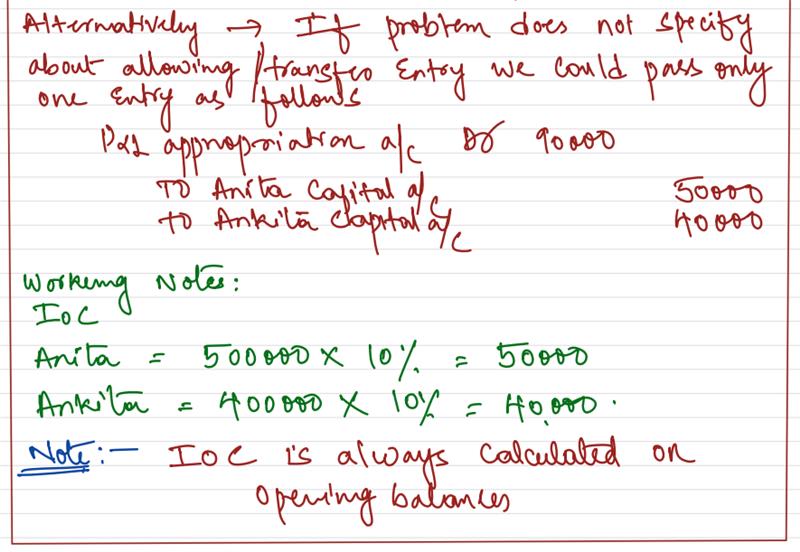 Alternatively → If problem does not specify
about allowing / transfer Entry we could pass only
one Entry as follows
P&L appropriation a/c Dr 90000
TO Anita Capital a/c 50000
to Ankita Capital a/c 40000
Working Notes:
IOC
Anita = 500000 × 10% = 50000
Ankita = 400000 × 10% = 40,000.
Note:- IOC is always calculated on
opening balances